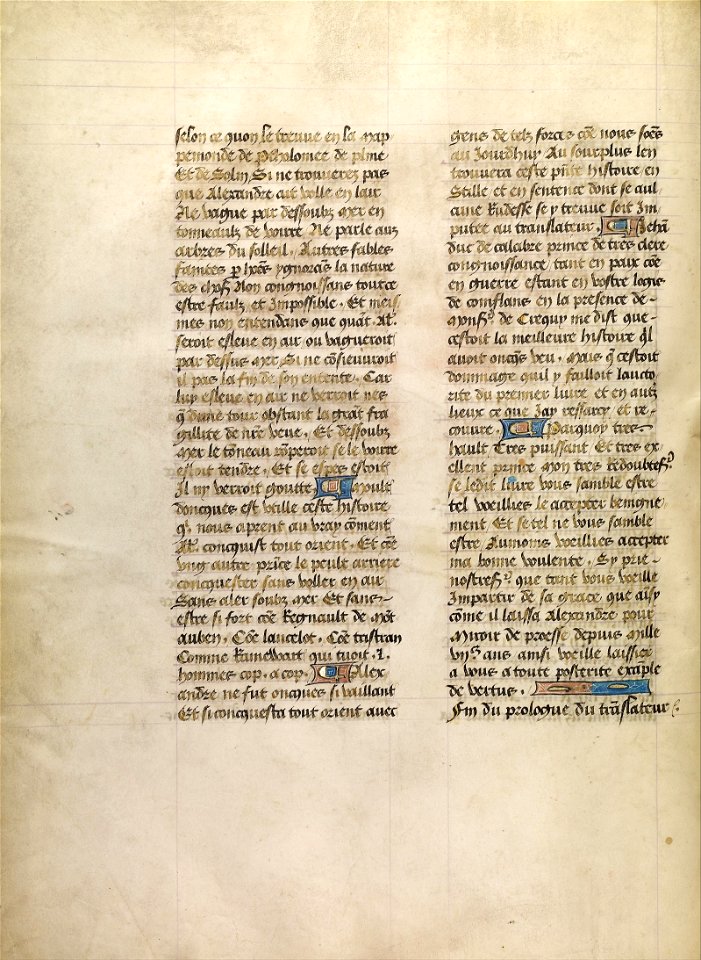 selon ce quon le treuue en la map
pemonde de Ptholomee de pline
Et de Solin, Si ne trouuerez pas
que Alexandre ait volle en lair
Ne vague par dessoubz mer en
tonneaulz de voirre Ne parle auz
arbres du solleil. Autres fables
faintes p hões ygnorãs la nature
des choses Non congnoissans tout ce
estre faulz et Impossible. Et meis
mes non entendans que quãt. Al.
seroit esleue en air ou vagueroit
par dessus mer, Si ne cõsieuuroit
il pas la fin de son entente. Car
luy esleue en air ne verroit nes
q̃ dune tour obstant la grãt fra
gillite de nr̃e veue. Et dessoubz
mer le tõneau rõperoit se le voirre
estoit tendre. Et se espes estoit
Il ny verroit goutte Moult
doncques est vtille ceste histoire
q̃ nous aprent au vray cõment
Al. concquist tout orient. Et cõe
vng autre prĩce le peult arriere
concquester sans voller en air
Sans aler soubz mer Et sans
estre si fort cõe Regnault de mõt
auben. Cõe lancelot. Cõe tristran
Comme Rainewart qui tuoit .L.
hommes cop. a cop. Alex
andre ne fut oncques si vaillant
Et si concquesta tout orient auec
gens de telz forces cõe nous soẽs
au Jourdhuy Au sourplus len
trouuera ceste pñte histoire en
Stille et en sentence dont se aul
cune Rudesse se y treuue soit Im
putee au translateur. Jehã
duc de calabre prince de tres clere
congnoissance, tant en paix cõe
en guerre estant en vostre logis
de conflans en la presence de
Monsr de Crequy me dist que
cestoit la meilleure histoire q̃l
auoit oncq̃s veu. Mais q̃ cestoit
dommage quil y failloit laucto
rite du premier liure et en autz
lieux ce que Jay ressarcy et re
couure. Parquoy tres
hault Tres puissant Et tres ex
ellent prince Mon tres redoubte sr
se ledit liure vous samble estre
tel vueillies le accepter benigne
ment Et se tel ne vous samble
estre Aumoins vueillies accepter
ma bonne voulente. Sy prie
nostre sr que tant vous vueille
Impartir de sa grace que aisy
cõme il laissa Alexandre pour
Miroir de proesse depuis mille
viijc ans ainsi vueille laissier
a vous a toute posterite exãple
de vertus.
Fin du prologue du trãslateur